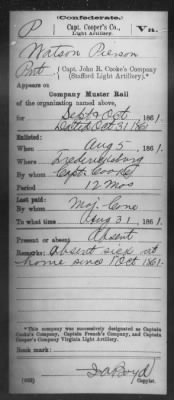 (Confederate.)
P Capt. Cooper's Co., Vn.
Light Artillery.*
Watson Pierson
Pvt, Capt. John R. Cooke's Company
(Stafford Light Artillery).*
Appears on
Company Muster Roll
of the organization named above,
for Sept & Oct, 1861.
Dated Oct 31 1861
Enlisted:
When Aug 5, 1861.
Where Fredericksburg
By whom Capt Cooke
Period 12 mos
Last paid:
By whom Maj. Cone
To what time Aug 31, 1861.
Present or absent Absent
Remarks: Absent sick at
home since 1 Oct 1861.
*This company was successively designated as Captain
Cooke's Company, Captain French's Company, and Captain
Cooper's Company Virginia Light Artillery.
Book mark:
(642) Boyd
Copyist.